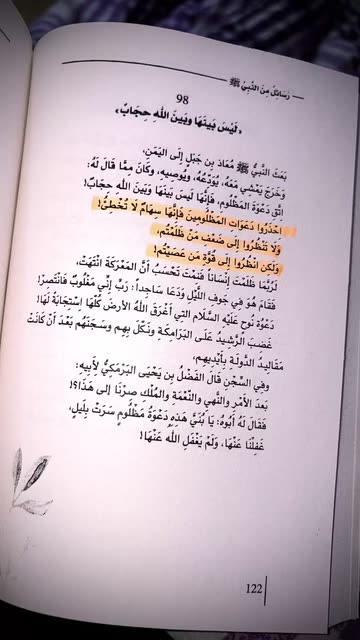 رَسَائِلُ مِنَ النَّبِيِّ ﷺ
98
«لَيْسَ بَيْنَهَا وَبَيْنَ اللهِ حِجَابٌ»
بَعَثَ النَّبِيُّ ﷺ مُعَاذ بن جَبَلٍ إلَى اليَمَنِ،
وَخَرَجَ يَمْشِي مَعَهُ، يُوَدِّعُهُ، وَيُوصِيهِ، وَكَانَ مِمَّا قَالَ لَهُ:
اِتَّقِ دَعْوَةَ المَظْلُومِ، فَإنَّهَا لَيْسَ بَيْنَهَا وَبَيْنَ اللهِ حِجَابٌ!
اِحْذَرُوا دَعَوَاتِ المَظْلُومِينَ فَإنَّهَا سِهَامٌ لَا تُخْطِئُ!
وَلَا تَنْظُرُوا إلَى ضَعْفِ مَنْ ظَلَمْتُم،
وَلَكِن انْظُرُوا إلَى قُوَّةِ مَنْ عَصَيْتُم!
لَرُبَّمَا ظَلَمْتَ إنْسَانًا فَنِمْتَ تَحْسَبُ أنَّ المَعْرَكَةَ انْتَهَتْ،
فَقَامَ هُوَ فِي جَوفِ اللَّيْلِ وَدَعَا سَاجِداً: رَبِّ إنِّي مَغْلُوبٌ فَانْتَصِرْ!
دَعْوَةُ نُوحٍ عَلَيْهِ السَّلَام الَّتِي أَغْرَقَ اللهُ الأرضَ كُلَّهَا اِسْتِجَابَةً لَهَا!
غَضِبَ الرَّشِيدُ عَلَى البَرَامِكَةِ وَنَكَّلَ بِهِم وَسَجَنَهُم بَعْدَ أنْ كَانَتْ
مَقَالِيدُ الدَّولَةِ بِأيْدِيهِم،
وَفِي السِّجْنِ قَالَ الفَضْلُ بن يَحْيَى البَرْمَكِيُّ لِأبِيهِ:
بَعدَ الأمْرِ والنَّهي والنِّعْمَةِ والمُلْكِ صِرْنَا إلَى هَذَا؟!
فَقَالَ لَهُ أبُوهُ: يَا بُنَيَّ هَذِهِ دَعْوَةُ مَظْلُومٍ سَرَتْ بِلَيلٍ،
غَفِلْنَا عَنْهَا، وَلَمْ يَغْفَلِ اللهُ عَنْهَا!
122